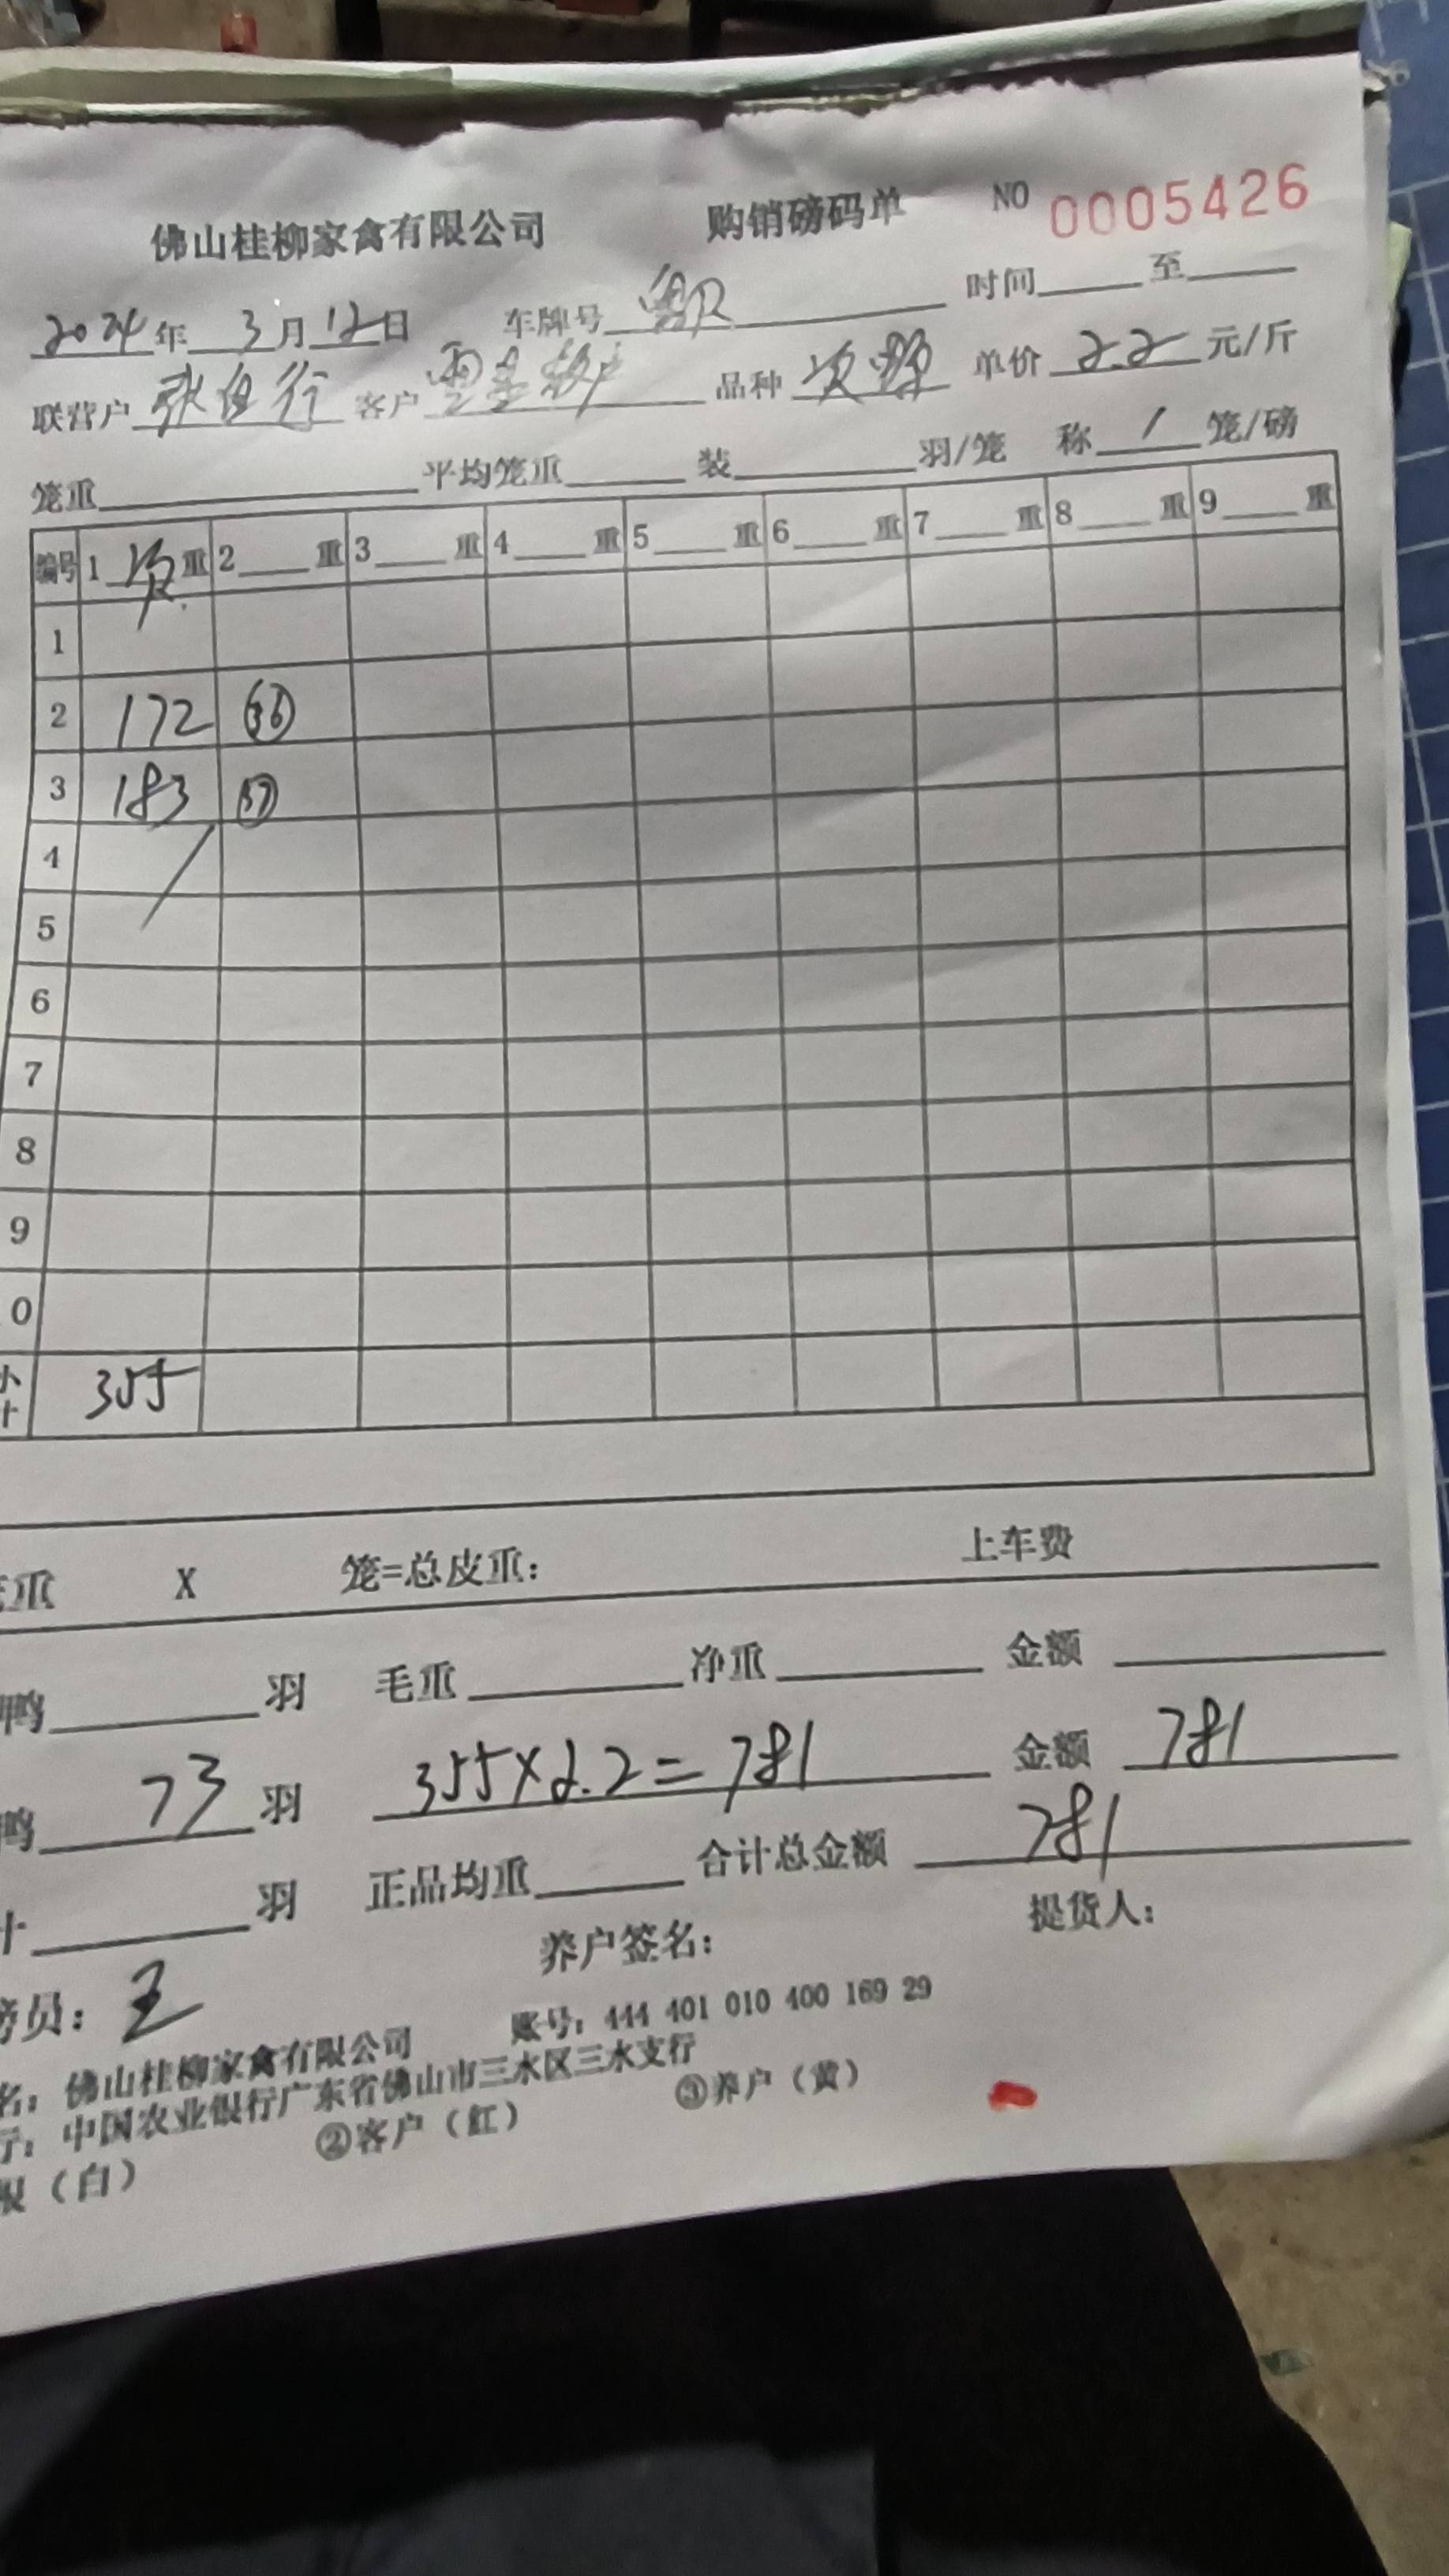 佛山桂柳家禽有限公司 购销磅码单 NO 0005426
2024年 3月12日 车牌号 时间 至
联营户 张 行 客户 品种 次 单价 2.2 元/斤
笼重 平均笼重 装 羽/笼 称 1 笼/磅
编号 1 次 重 2 重 3 重 4 重 5 重 6 重 7 重 8 重 9 重
1
2 172 36
3 183 37
4
5
6
7
8
9
0
小计 355
重 X 笼=总皮重： 上车费
鸭 羽 毛重 净重 金额
鸭 73 羽 355×2.2=781 金额 781
计 羽 正品均重 合计总金额 781
员：王 养户签名： 提货人：
名：佛山桂柳家禽有限公司 账号：444 401 010 400 169 29
行：中国农业银行广东省佛山市三水区三水支行
（白） ②客户（红） ③养户（黄）